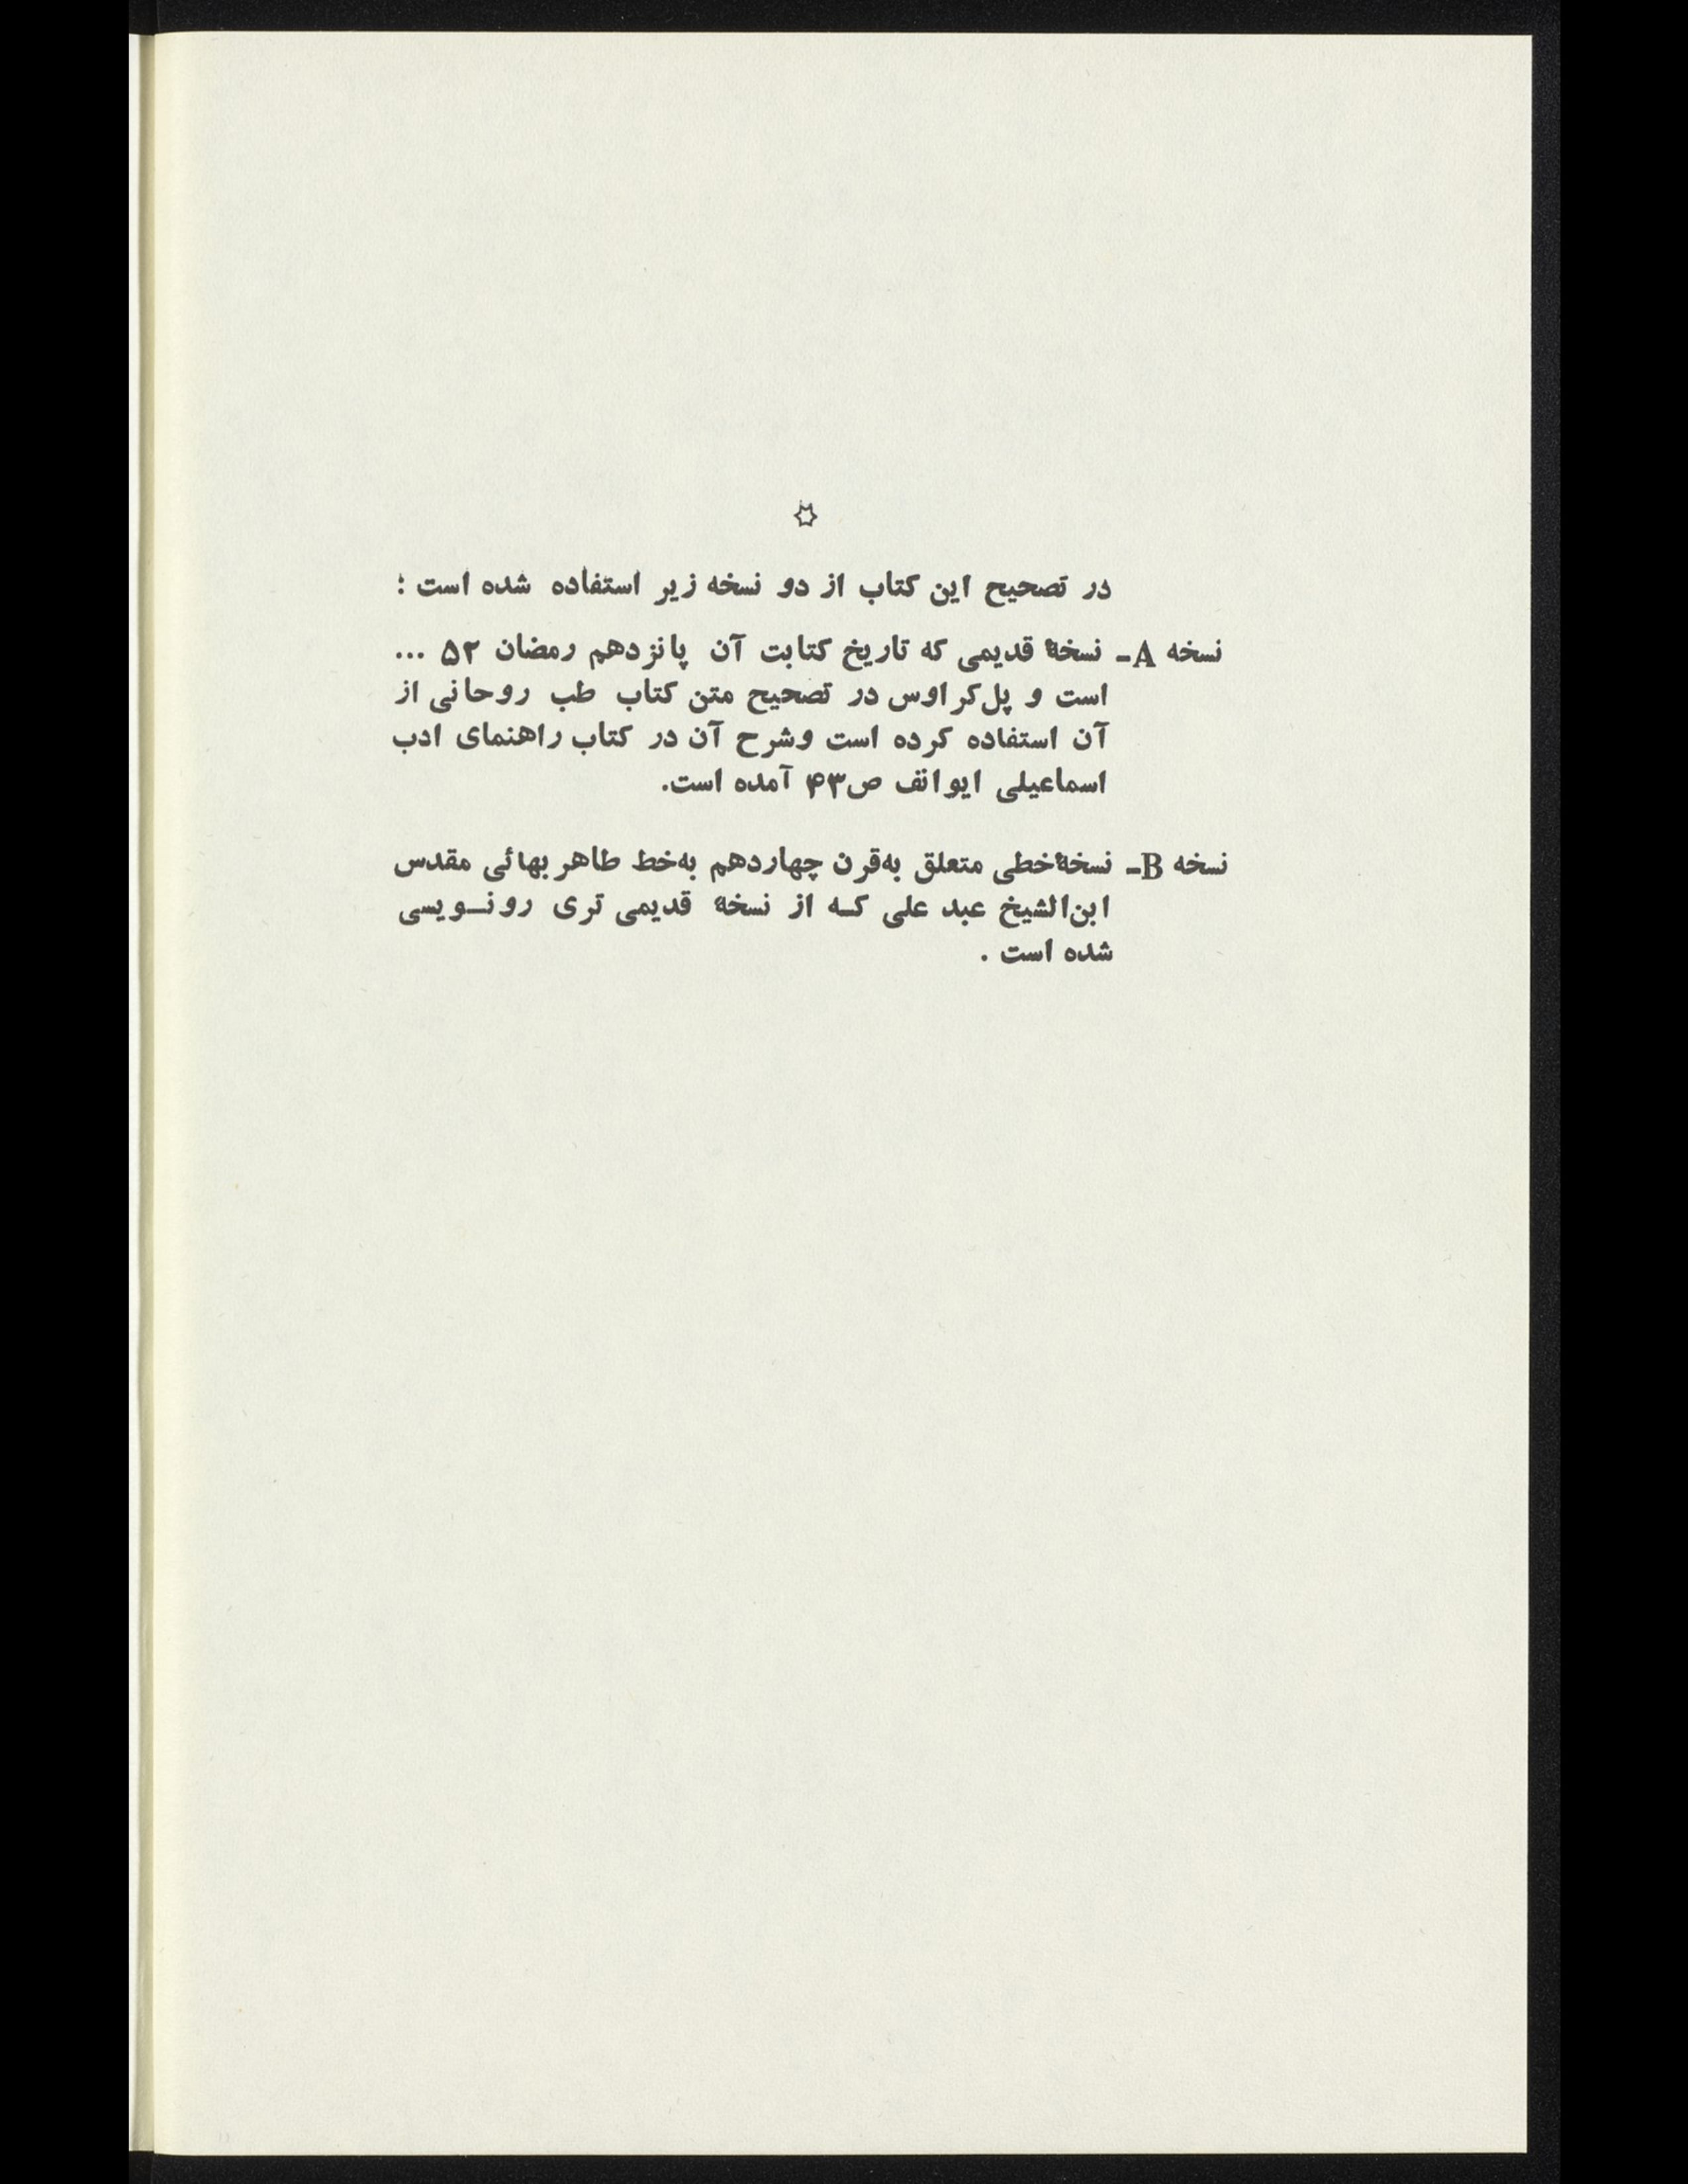 در تصحیح این کتاب از دو نسخه زیر استفاده شده است :
نسخه A- نسخهٔ قدیمی که تاریخ کتابت آن پانزدهم رمضان ۵۲ ...
است و پل‌کراوس در تصحیح متن کتاب طب روحانی از
آن استفاده کرده است وشرح آن در کتاب راهنمای ادب
اسماعیلی ایوانف ص۴۳ آمده است.
نسخه B- نسخهٔ‌خطی متعلق به‌قرن چهاردهم به‌خط طاهر بهائی مقدس
ابن‌الشیخ عبد علی کـه از نسخهٔ قدیمی تری رونـویسی
شده است .